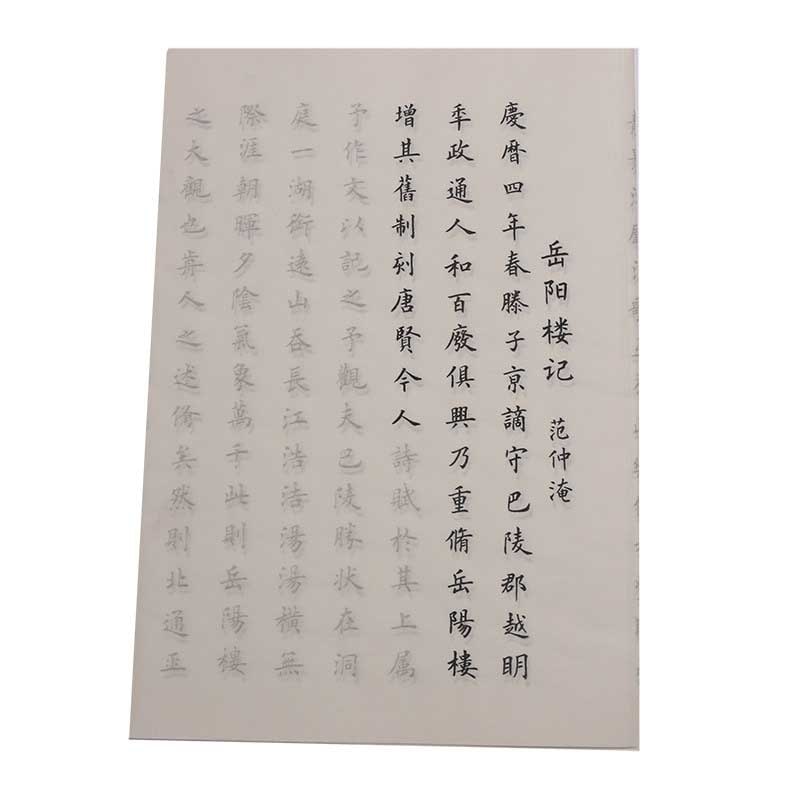 岳阳楼记 范仲淹
慶暦四年春滕子亰謫守巴陵郡越眀
秊政通人和百廢俱興乃重脩岳陽樓
增其舊制刻唐賢今人詩賦於其上属
予作文以記之予觀夫巴陵勝状在洞
庭一湖銜遠山吞長江浩浩湯湯橫無
際涯朝暉夕陰氣象萬千此則岳陽樓
之大觀也前人之述俻矣然則北通巫